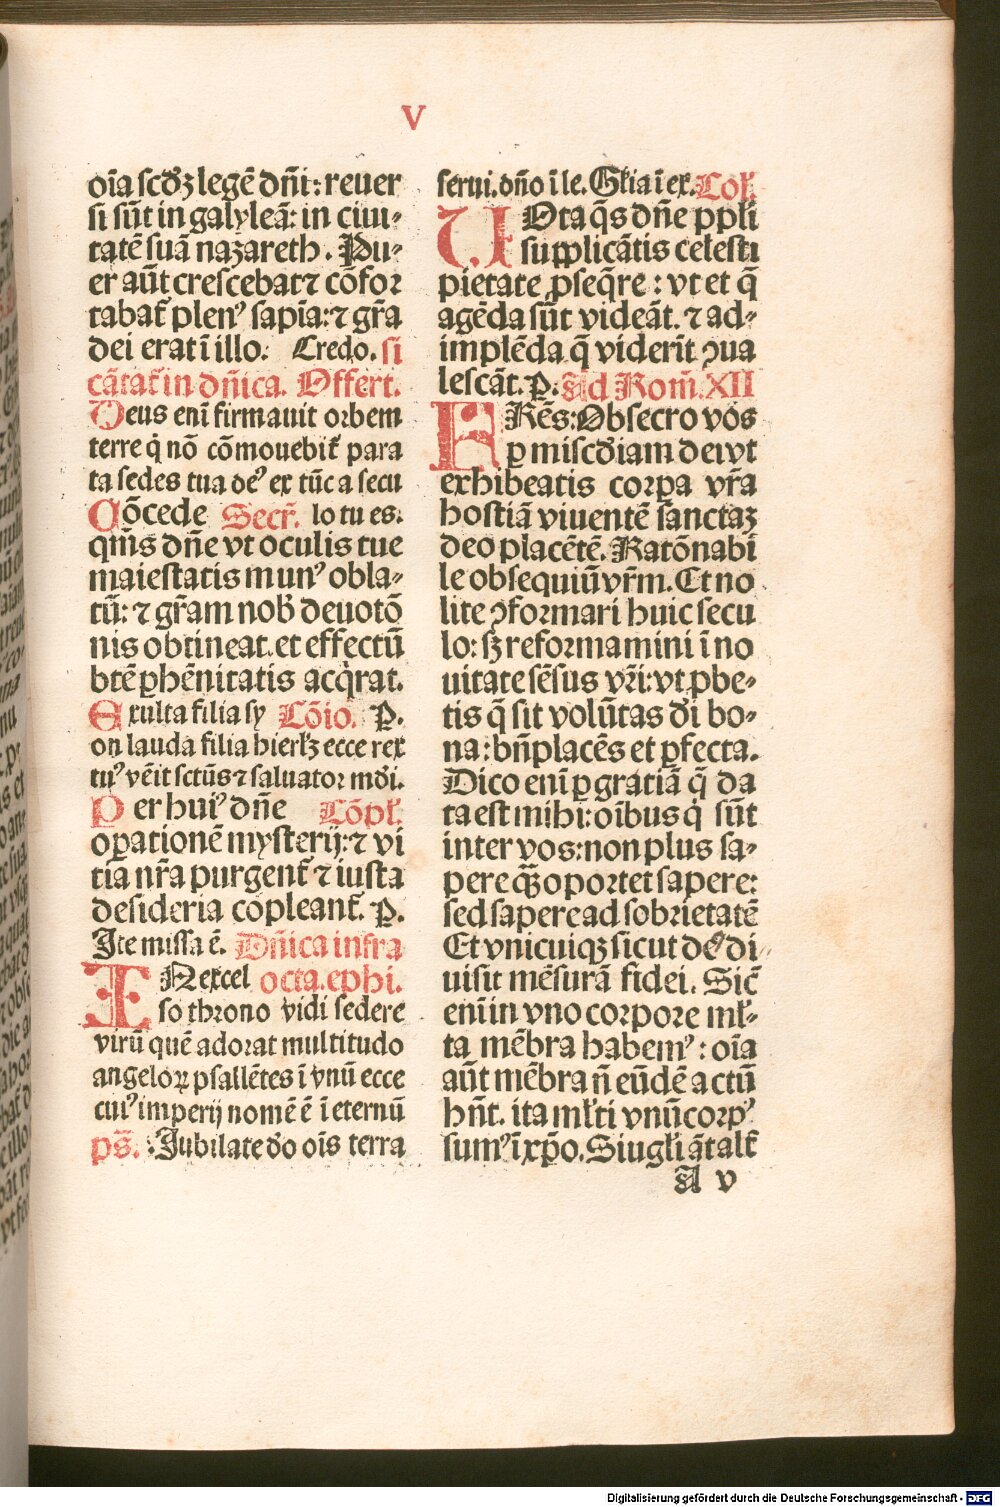 V
oĩa scđʒ legẽ dñi: reuer
si sũt in galyleã: in ciui-
tatẽ suã nazareth. Pu-
er aũt crescebat ⁊ cõfor
tabat̃ plenꝰ sapĩa: ⁊ gr̃a
dei erat ĩ illo. Credo. si
cãtat̃ in dñica. Offert.
Deus enĩ firmauit orbem
terre q̇ nõ cõmouebit̃ para
ta sedes tua deꝰ ex tũc a secu
Cõcede Secr̃. lo tu es.
qm̃s dñe vt oculis tue
maiestatis munꝰ obla-
tũ: ⁊ gr̃am nob̃ deuotõ
nis obtineat. et effectũ
btẽ ꝑhẽnitatis acq̇rat.
Exulta filia sy Cõio. P.
on lauda filia hierlʒ ecce rex
tuꝰ vẽit sctũs ⁊ saluator mđi.
Per huiꝰ dñe Cõpl̃.
oꝑationẽ mysterij: ⁊ vi
tia nr̃a purgent̃ ⁊ iusta
desideria cõpleant̃. P.
Ite missa ẽ. Dñica infra
IN excel octa. ephi.
so throno vidi sedere
virũ quẽ adorat multitudo
angeloꝝ psallẽtes ĩ vnũ ecce
cuiꝰ imperij nomẽ ẽ ĩ eternũ
pš. Jubilate do oĩs terra
serui. dño ĩ le. Gl̃ia ĩ ex. Col̃.
VOta q̃s dñe ppl̃i
supplicãtis celesti
pietate ꝓseq̃re: vt et q̃
agẽda sũt videãt. ⁊ ad-
implẽda q̃ viderĩt ꝯua
lescãt. P. Ad Rom̃. XII
FRẽs: Obsecro vos
ꝑ miscđiam dei vt
exhibeatis corpa vr̃a
hostiã viuentẽ sanctaʒ
deo placẽtẽ. Ratõnabi
le obsequiũ vr̃m. Et no
lite ꝯformari huic secu
lo: sʒ reformamini ĩ no
uitate sẽsus vr̃i: vt ꝓbe-
tis q̃ sit volũtas đi bo-
na: bñplacẽs et ꝑfecta.
Dico enĩ ꝑ gratiã q̃ da
ta est mihi: oĩbus q̇ sũt
inter vos: non plus sa-
pere qʒ̃ oportet sapere:
sed sapere ad sobrietatẽ
Et vnicuiqʒ sicut de⁹ di
uisit mẽsurã fidei. Sic̃
enĩ in vno corpore ml̃-
ta mẽbra habemꝰ: oĩa
aũt mẽbra ñ eũdẽ actũ
hñt. ita ml̃ti vnũ corpꝰ
sumꝰ ĩ xp̃o. Siugl̃i ãt alt̃
A v
Digitalisierung gefördert durch die Deutsche Forschungsgemeinschaft - DFG